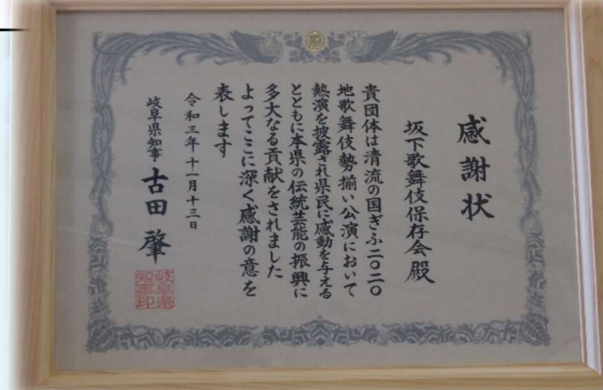 感謝状
坂下歌舞伎保存会殿
貴団体は清流の国ぎふ二〇二〇
地歌舞伎勢揃い公演において
熱演を披露され県民に感動を与える
とともに本県の伝統芸能の振興に
多大なる貢献をされました
よってここに深く感謝の意を
表します
令和三年十一月十三日
岐阜県知事 古田肇
岐阜県
知事印